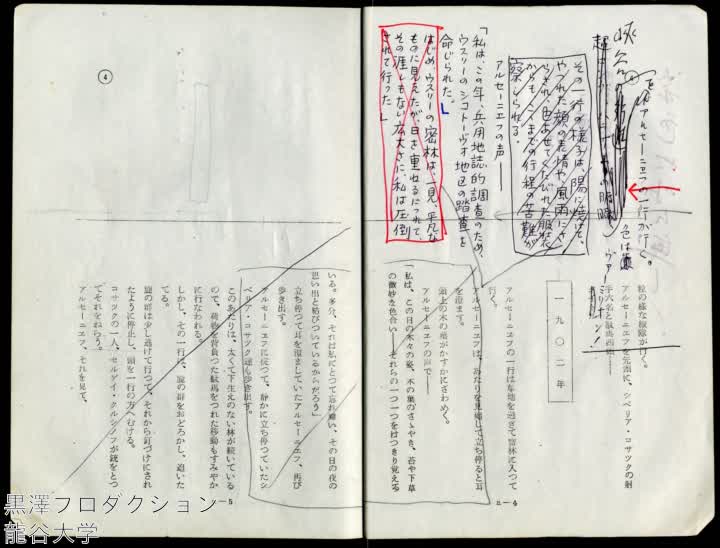 を往くアルセーニエフの一行が行く。
その一行の様子は、陽に焼けて、
やつれた顔の表情や、風雨にさ
らされ、色あせて、くたびれた服装
からも、こゝまでの行程の苦難が
察しられる。
アルセーニエフの声――
「私は、この年、兵用地誌的調査のため、
ウスリーのシコトーヴォ地区の踏査を
命じられた。」
はじめ、ウスリーの密林は、一見、平凡な
ものに見えたが、日を重ねるにつれて、
その涯しもない広大さに、私は圧倒
されて行った」
④
粒の様な縦隊が行く。
アルセーニエフを先頭に、シベリア・コサックの射
手六名と駄馬四頭――
一九〇二年
アルセーニエフの一行は草地を過ぎて密林に入って
行く。
アルセーニエフは、あたりを見廻して立ち停ると耳
を澄ます。
頭上の木の葉がかすかにざわめく。
アルセーニエフの声で――
「私は、この日の木々の姿、木の葉のさゝやき、苔や下草
の微妙な色合い――それらの一つ一つをはっきり覚えて
D-4
いる。多分、それは私にとって忘れ難い、その日の夜の
思い出と結びついているからだろう」
立ち停って耳を澄ましていたアルセーニエフ、再び
歩き出す。
アルセーニエフに従って、静かに立ち停っていたシ
ベリア・コサック達も歩き出す。
このあたりは、太くて下生えのない林が続いている
ので、荷物を背負った駄馬をつれた移動もすみやか
に行なわれる。
しかし、その一行は、鹿の群をおどろかし、追いた
てる。
鹿の群は少し逃げて行って、それから釘づけにされ
たように停止し、頭を一行の方へむける。
コサックの一人、セルゲイ・クルシノフが銃をとっ
てそれをねらう。
アルセーニエフ、それを見て、
5
黒澤プロダクション
龍谷大学